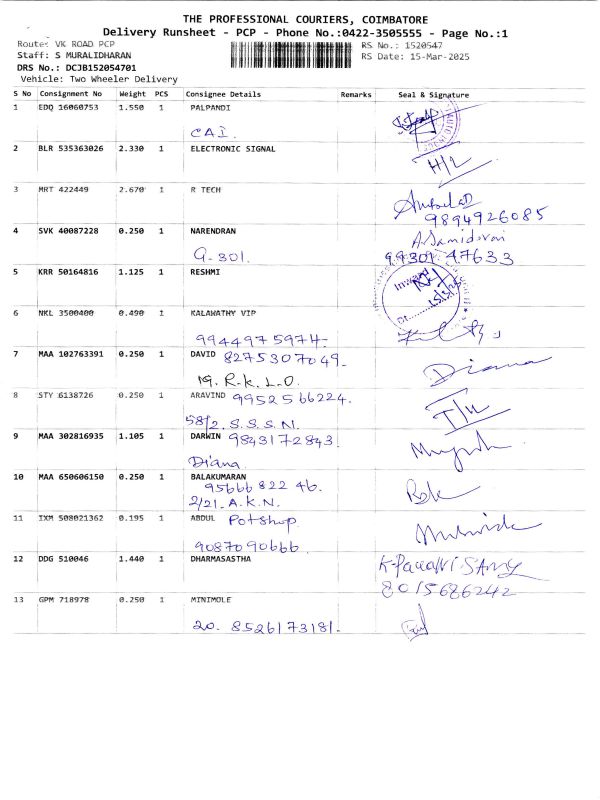 THE PROFESSIONAL COURIERS, COIMBATORE
Delivery Runsheet - PCP - Phone No.:0422-3505555 - Page No.:1
Route: VK ROAD PCP
RS No.: 1520547
Staff: S MURALIDHARAN
RS Date: 15-Mar-2025
DRS No.: DCJB152054701
Vehicle: Two Wheeler Delivery
S No Consignment No Weight PCS Consignee Details Remarks Seal & Signature
1 EDQ 16060753 1.550 1 PALPANDI
CAI.
2 BLR 535363026 2.330 1 ELECTRONIC SIGNAL
H/L
3 MRT 422449 2.670 1 R TECH
9894926085
4 SVK 40087228 0.250 1 NARENDRAN
G-301. 99301 47633
5 KRR 50164816 1.125 1 RESHMI
Inward
6 NKL 3500400 0.490 1 KALAWATHY VIP
9944975974-
7 MAA 102763391 0.250 1 DAVID 8275307049. Diana
19. R.K.L.O.
8 STY 6138726 0.250 1 ARAVIND 9952566224.
58/2. S.S.S.N.
9 MAA 302816935 1.105 1 DARWIN 9843172843
Diana.
10 MAA 650606150 0.250 1 BALAKUMARAN
95666 822 46.
2/21. A.K.N.
11 IXM 508021362 0.195 1 ABDUL Potshop
9087090666
12 DDG 510046 1.440 1 DHARMASASTHA
8015686242
13 GPM 718978 0.250 1 MINIMOLE
20. 8526173181.